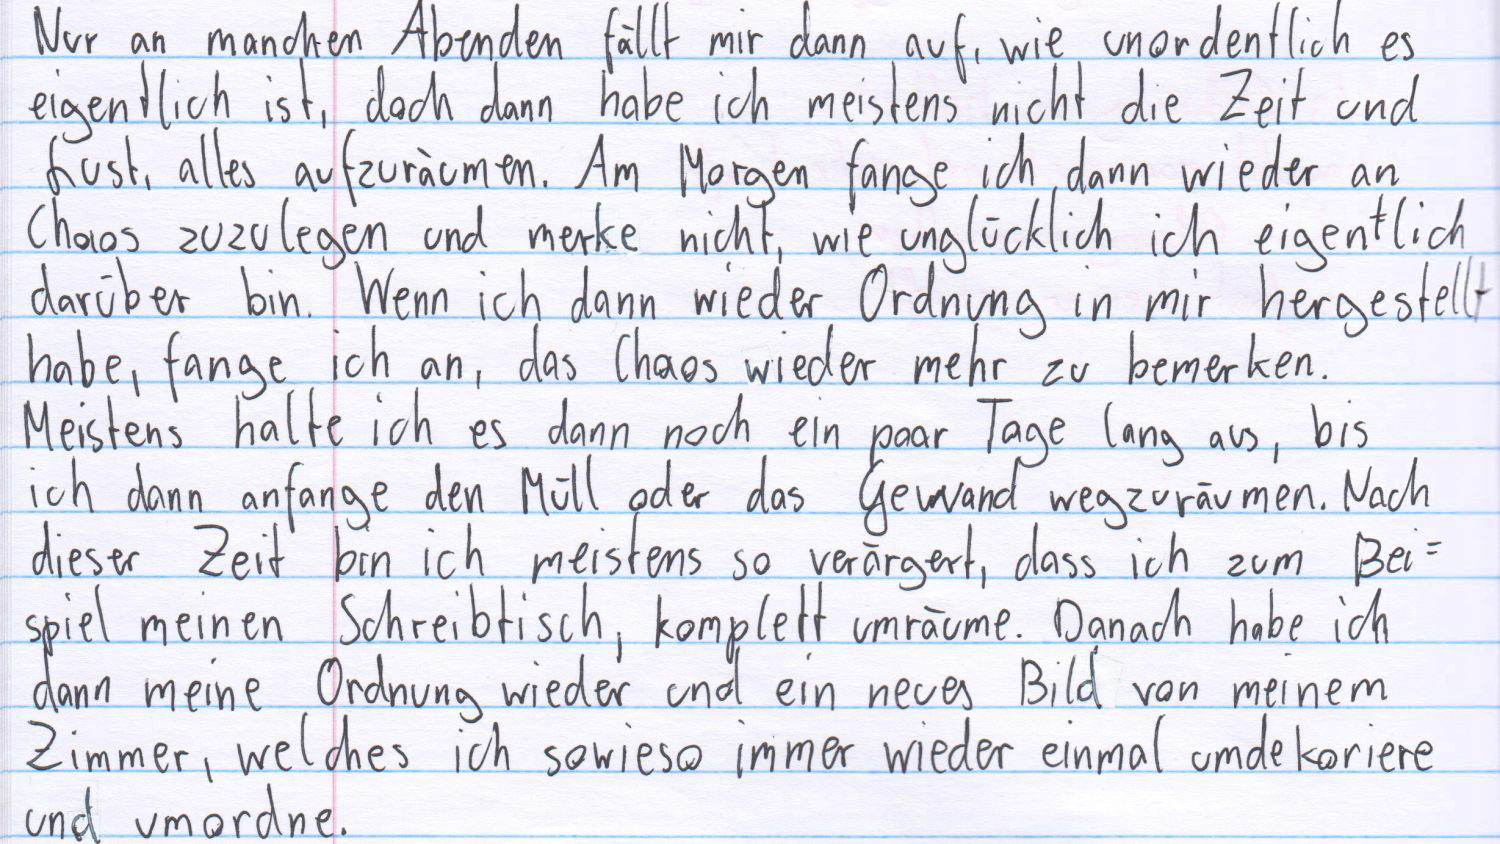 Nur an manchen Abenden fällt mir dann auf, wie unordentlich es
eigentlich ist, doch dann habe ich meistens nicht die Zeit und
Lust, alles aufzuräumen. Am Morgen fange ich dann wieder an
Chaos zuzulegen und merke nicht, wie unglücklich ich eigentlich
darüber bin. Wenn ich dann wieder Ordnung in mir hergestellt
habe, fange ich an, das Chaos wieder mehr zu bemerken.
Meistens halte ich es dann noch ein paar Tage lang aus, bis
ich dann anfange den Müll oder das Gewand wegzuräumen. Nach
dieser Zeit bin ich meistens so verärgert, dass ich zum Bei=
spiel meinen Schreibtisch, komplett umräume. Danach habe ich
dann meine Ordnung wieder und ein neues Bild von meinem
Zimmer, welches ich sowieso immer wieder einmal umdekoriere
und umordne.